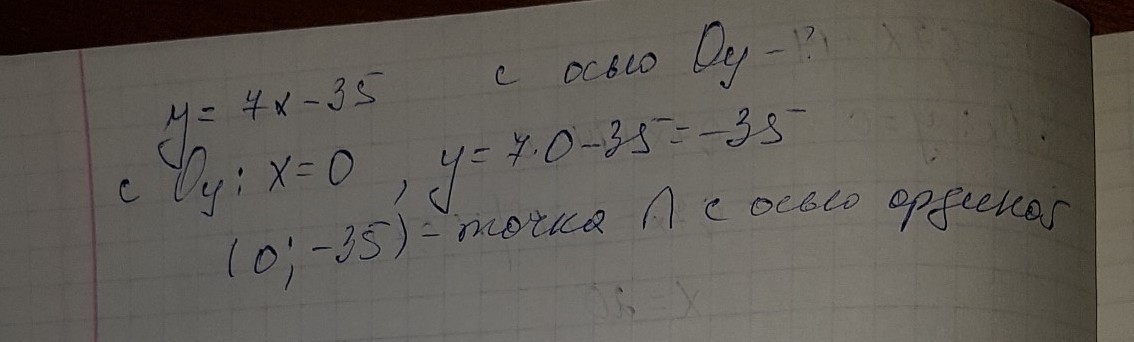 y = 7x - 35 с осью Oy - ?
с Oy: x = 0, y = 7·0 - 35 = -35
(0; -35) - точка ∩ с осью ординат